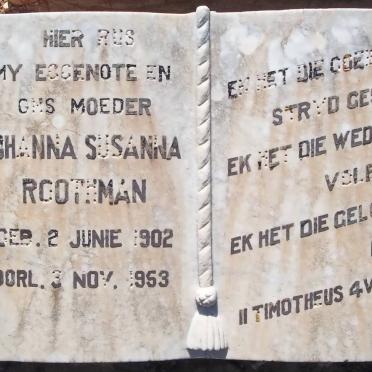 HIER RUS
MY EGGENOTE EN
ONS MOEDER
OHANNA SUSANNA
ROOTHMAN
GEB. 2 JUNIE 1902
OORL. 3 NOV. 1953
EK HET DIE GOE
STRYD GES
EK HET DIE WED
VOLE
EK HET DIE GELO
II TIMOTHEUS 4 V